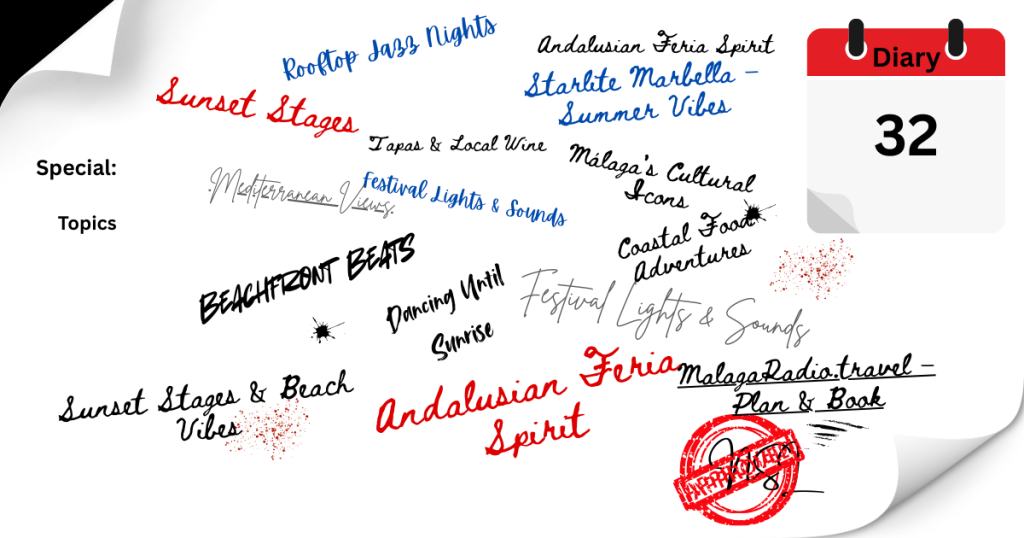 Rooftop Jazz Nights
Andalusian Feria Spirit
Diary
Starlite Marbella –
Summer Vibes
Sunset Stages
32
Tapas & Local Wine
Málaga's Cultural
Icons
Special:
.Mediterranean Views.
Festival Lights & Sounds
Topics
Coastal Food
Adventures
Beachfront Beats
Dancing Until
Sunrise
Festival Lights & Sounds
Sunset Stages & Beach
Vibes
Andalusian Feria
Spirit
MalagaRadio.travel –
Plan & Book
APPROVED